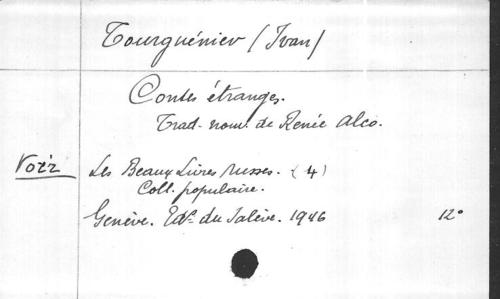 Tourguéniev (Ivan)
Contes étranges.
Trad. nouv. de Renée Alco.
Voir
Les Beaux Livres Russes. (4)
Coll. populaire.
Genève. Edns du Salève. 1946 12°